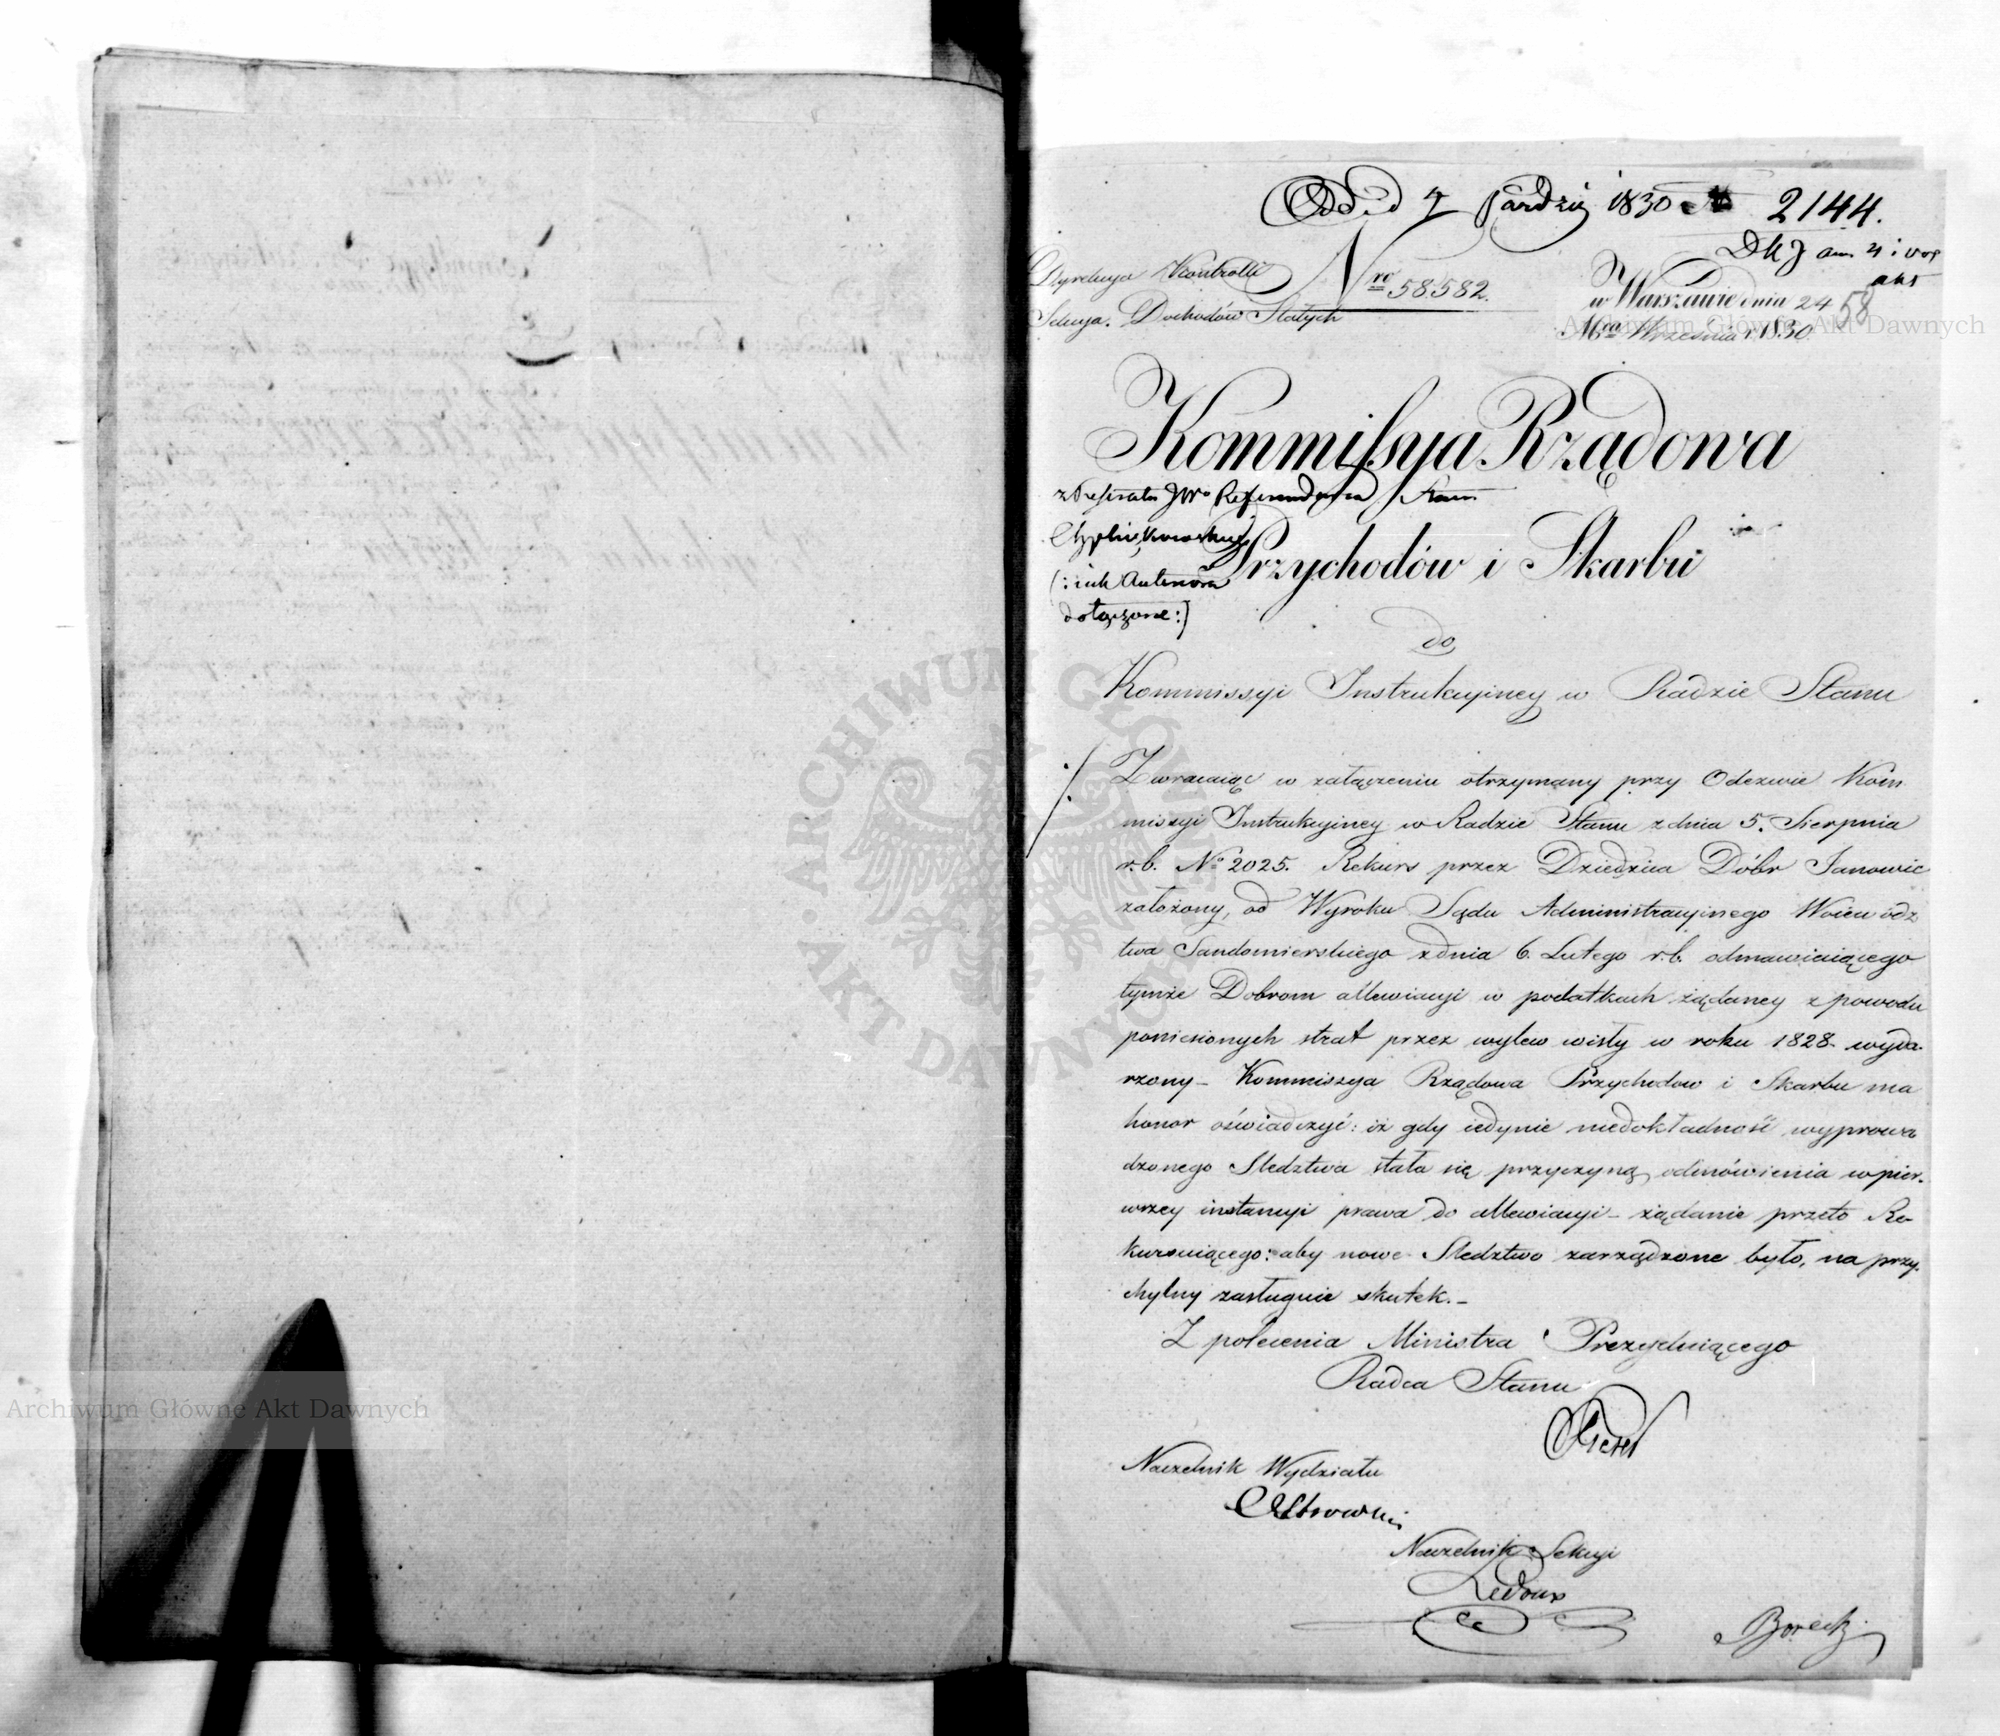 Odd. d. 7 Paźdz. 1830 N 2144.
Dyrekcya Kontrolli
Nro 58582.
Sekcya. Dochodów Stałych
w Warszawie dnia 24
Mca Września r. 1830
58
akt
Kommissya Rządowa
z Referatu JWo Referendarza Stanu
Przychodów i Skarbu
dołączone:)
do
Kommissyi Instrukcyiney w Radzie Stanu
Zwracaiąc w załączeniu otrzymany przy Odezwie Kom
missyi Instrukcyiney w Radzie Stanu z dnia 5. Sierpnia
r. b. No 2025. Rekurs przez Dziedzica Dóbr Janowic
założony, od Wyroku Sądu Administracyinego Woiewódz
twa Sandomierskiego z dnia 6. Lutego r. b. odmawiaiącego
tymże Dobrom allewiacyi w podatkach żądaney z powodu
poniesionych strat przez wylew wisły w roku 1828. wyda-
rzony – Kommissya Rządowa Przychodow i Skarbu ma
honor oświadczyć: iż gdy iedynie niedokładność wyprowa
dzonego Sledztwa stała się przyczyną odmówienia w pier-
wszey instancyi prawa do allewiacyi – żądanie przeto Re-
kursuiącego: aby nowe Sledztwo zarządzone było, na przy-
chylny zasługuie skutek. –
Z polecenia Ministra Prezyduiącego
Radca Stanu
Naczelnik Wydziału
Ostrowski
Naczelnik Sekcyi
Ledoux
Borecki
Archiwum Główne Akt Dawnych
Archiwum Główne Akt Dawnych
ARCHIWUM GŁÓWNE · AKT DAWNYCH ·